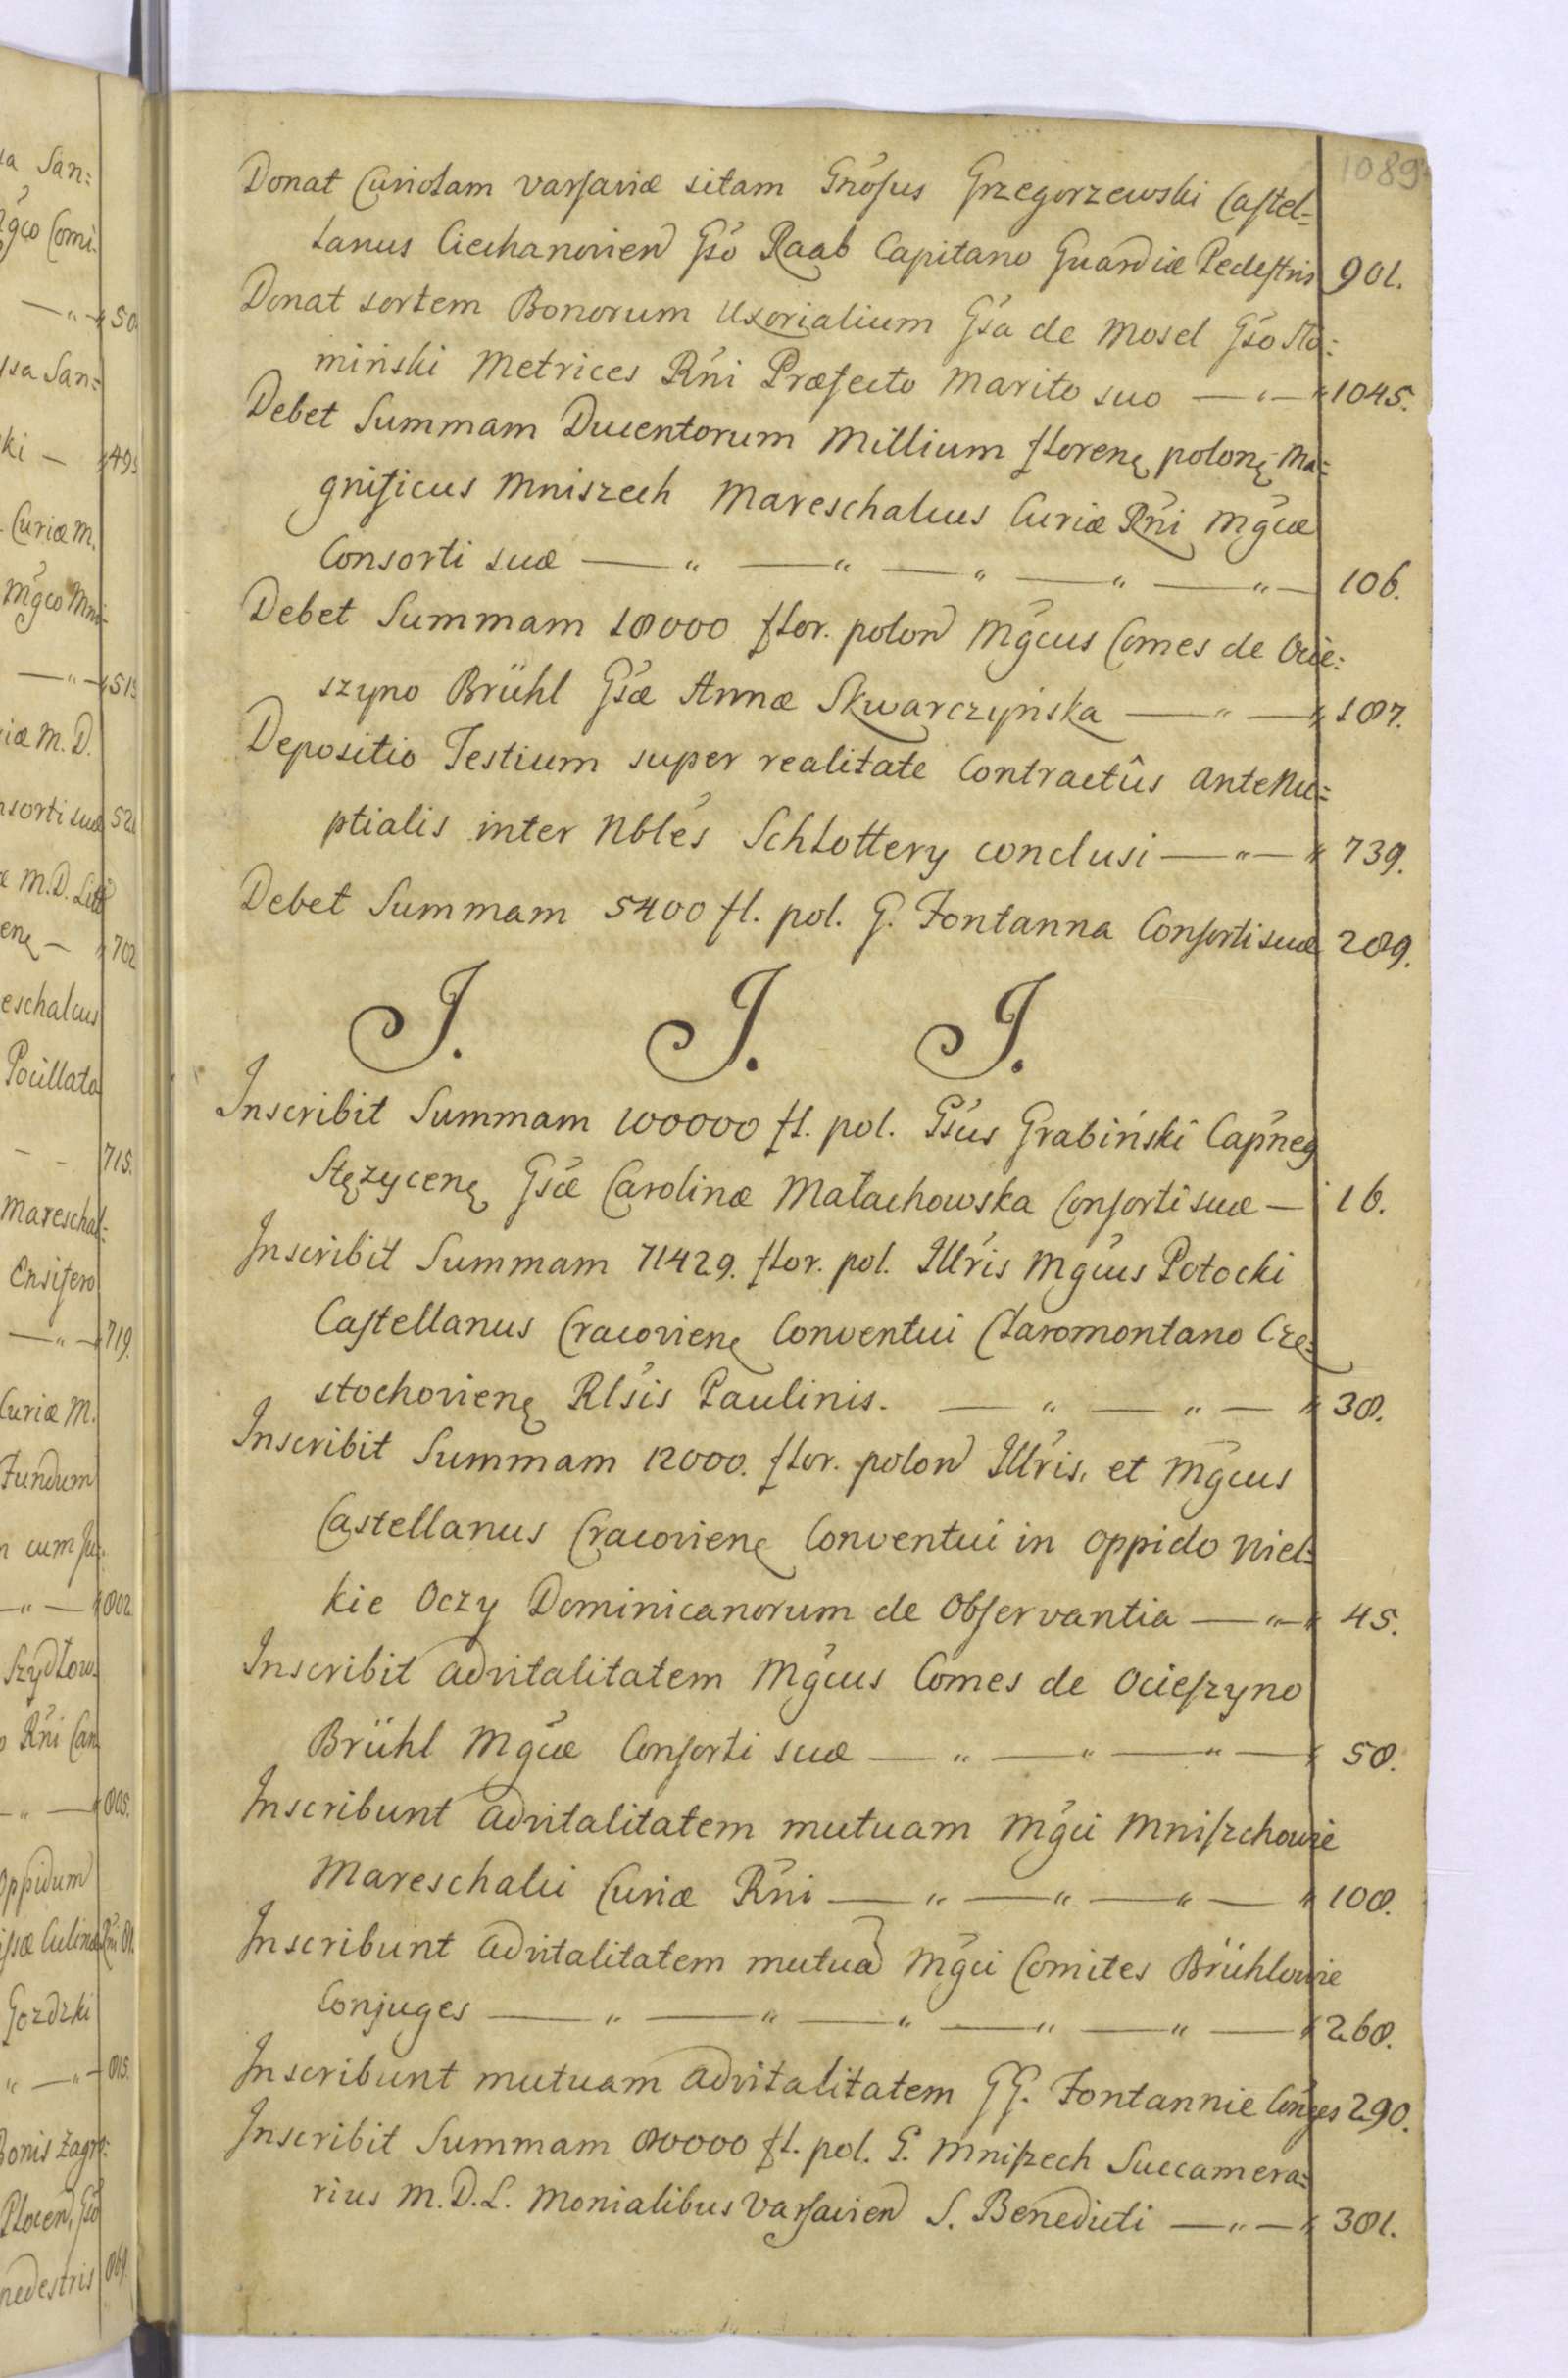 sa San:
Mg̃co Comi:
— " — 50
ssa San:
ki — " 495
Curiæ M.
Mg̃co Mni-
— " — 513
riæ M. D.
nsorti suæ 52
æ M. D. Litt
enę — " 702
eschalcus
Pocillato
- - 715.
Mareschal-
Ensifero
— " — 719.
Curiæ M.
Fundum
m cum Ju:
— " — 802.
Szydłow-
Rñi Can
— " — 805.
Oppidum
issæ Culinæ Rñi 81.
Gozdzki
" — " — 815.
Bonis Zagr:
Plocen̄, Gso
pedestris 869.
1089
Donat Curiolam varsaviæ sitam Gñosus Grzegorzewski Castel=
lanus Ciechanovien̄ Gs̃o Raab Capitano Guardiæ Pedestris 901.
Donat sortem Bonorum Uxorialium Gs̃a de Mosel Gs̃o Sło:
miński Metrices Rñi Præfecto Marito suo — " — " 1045.
Debet Summam Ducentorum Millium florenę polonę Ma=
gnificus Mniszech Mareschalcus Curiæ Rñi Mg̃cæ
Consorti suæ — " — " — " — " — " — 106.
Debet Summam 18000 flor. polon̄ Mg̃cus Comes de Ocie:
szyno Brühl Gs̃æ Annæ Skwarczyńska — " — " 187.
Depositio Testium super realitate Contractûs AnteNu=
ptialis inter Nblẽs Schlottery conclusi — " — " 739.
Debet Summam 5400 fl. pol. G. Fontanna Consorti suæ 289.
J. J. J.
Inscribit Summam 100000 fl. pol. Gs̃us Grabiński Capñeg
Stęzycenę Gs̃æ Carolinæ Małachowska Consorti suæ — 16.
Inscribit Summam 71429. flor. pol. Illr̃is Mg̃cus Potocki
Castellanus Cracovienę Conventui Claromontano Czę=
stochovienę Rls̃is Paulinis. — " — " — " 38.
Inscribit Summam 12000. flor. polon̄ Illr̃is, et Mg̃cus
Castellanus Cracovienę Conventui in Oppido Wiel=
kie Oczy Dominicanorum de Observantia — " — " 45.
Inscribit advitalitatem Mg̃cus Comes de Ocieszyno
Brühl Mg̃cæ Consorti suæ — " — " — " — " 58.
Inscribunt advitalitatem mutuam Mg̃ci Mniszchowie
Mareschalci Curiæ Rñi — " — " — " — " 108.
Inscribunt advitalitatem mutuā Mg̃ci Comites Brühlowie
Conjuges — " — " — " — " — " — " 268.
Inscribunt mutuam advitalitatem GG. Fontannie Coñges 290.
Inscribit Summam 80000 fl. pol. G. Mniszech Succamera=
rius M. D. L. Monialibus Varsavien̄ S. Benedicti — " — " 381.